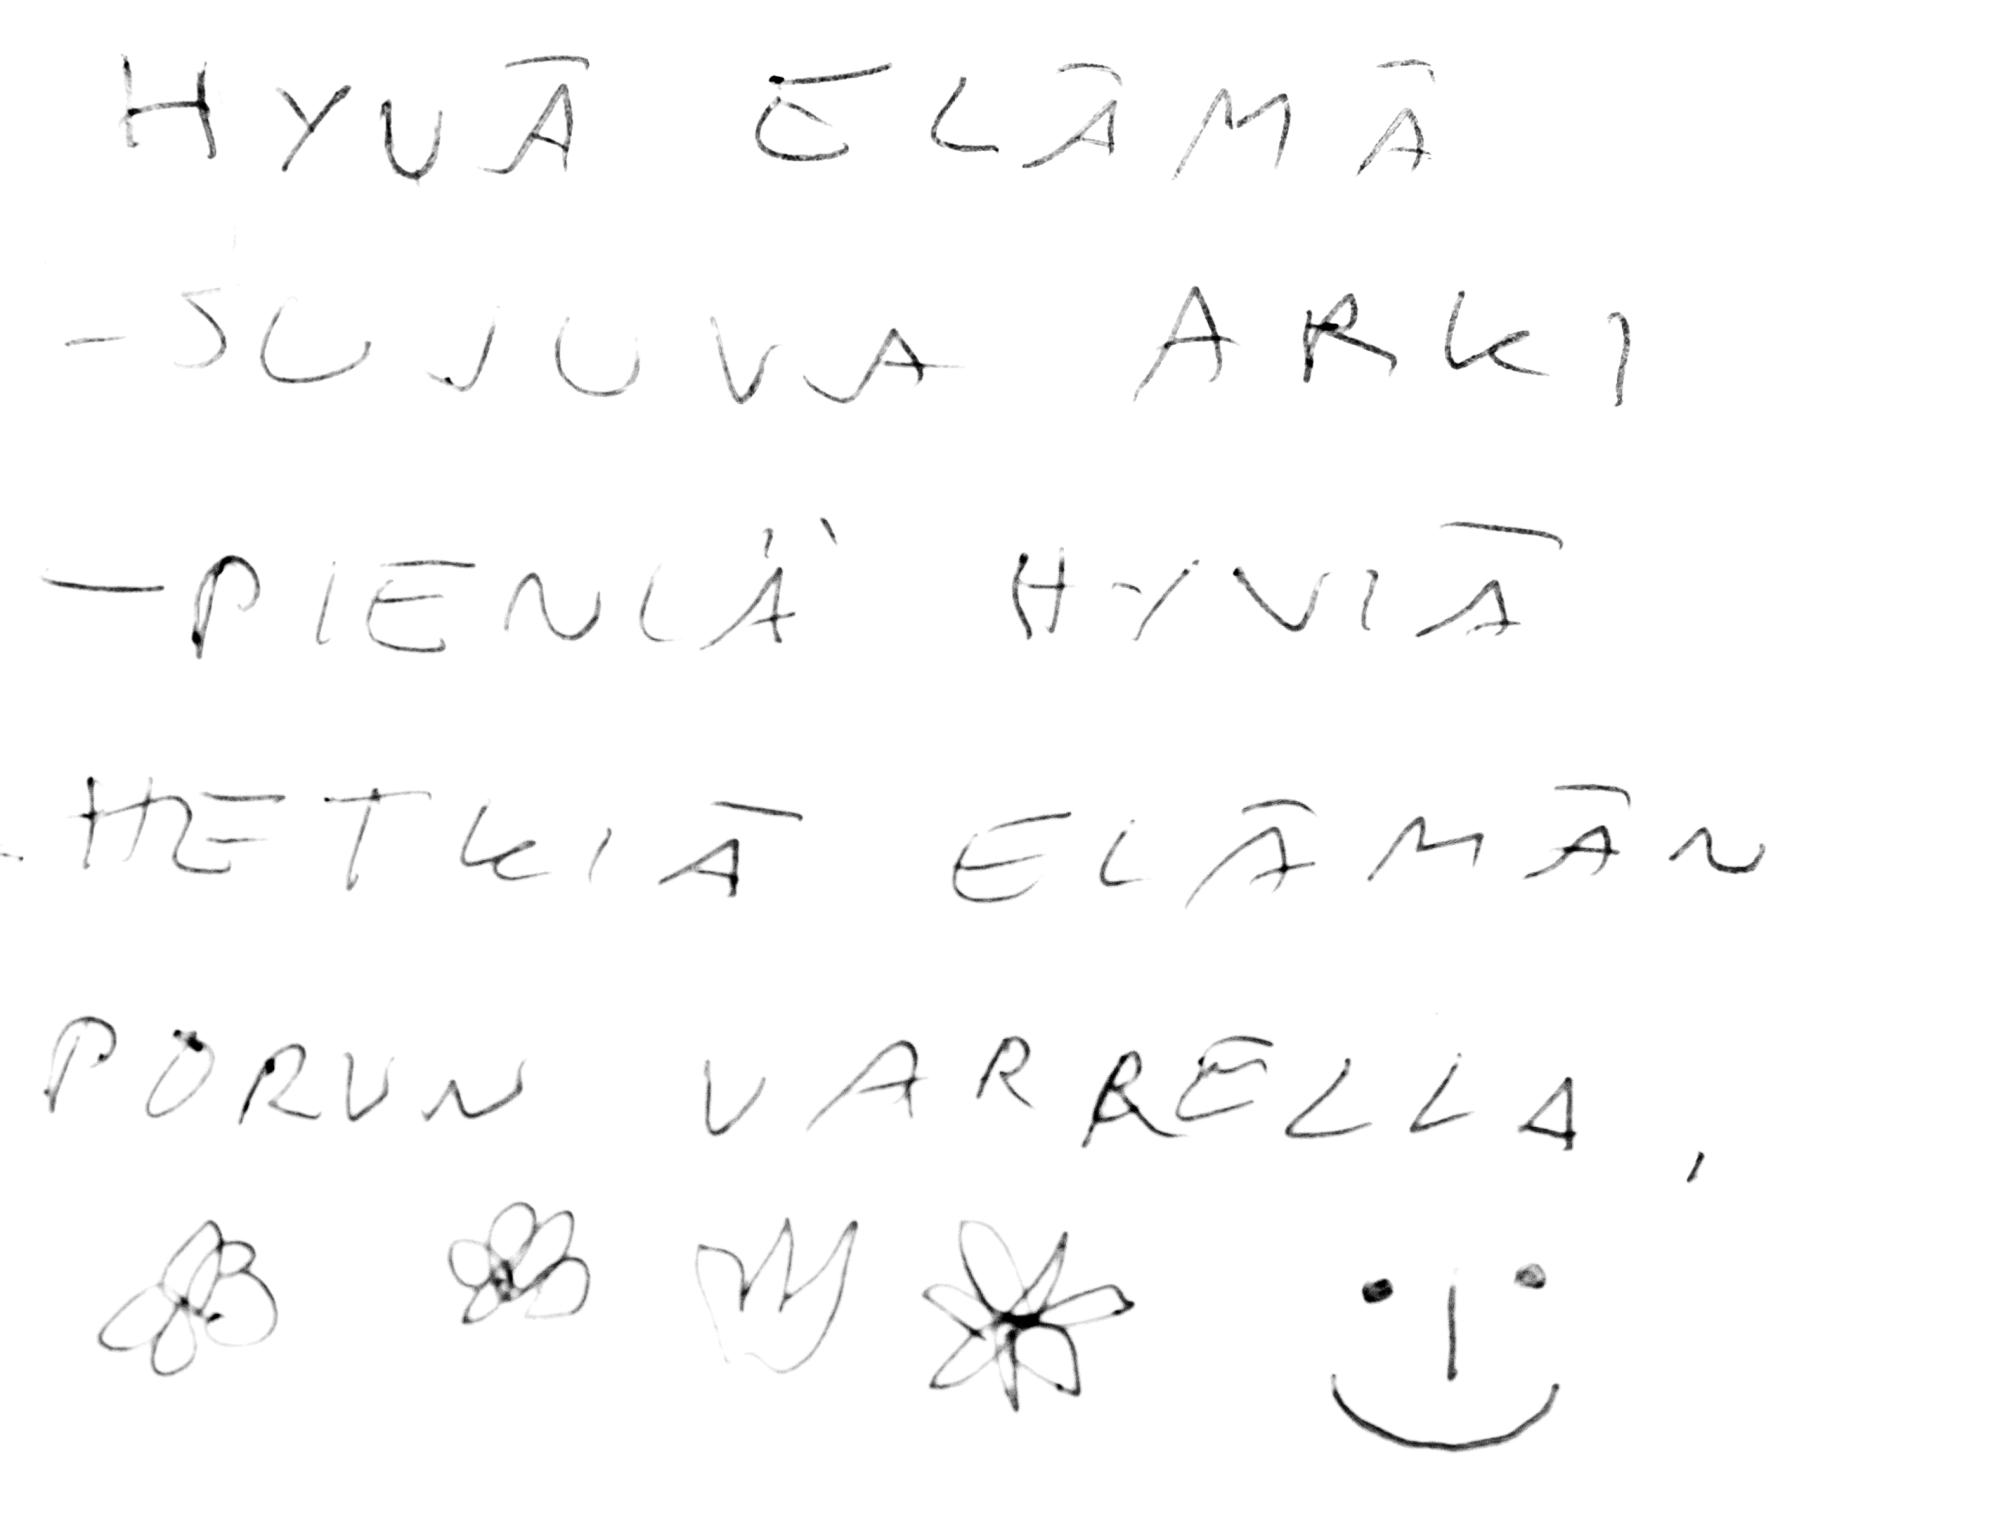 HYVÄ ELÄMÄ
- SUJUVA ARKI
- PIENIÄ HYVIÄ
HETKIÄ ELÄMÄN
PORUN VARRELLA,